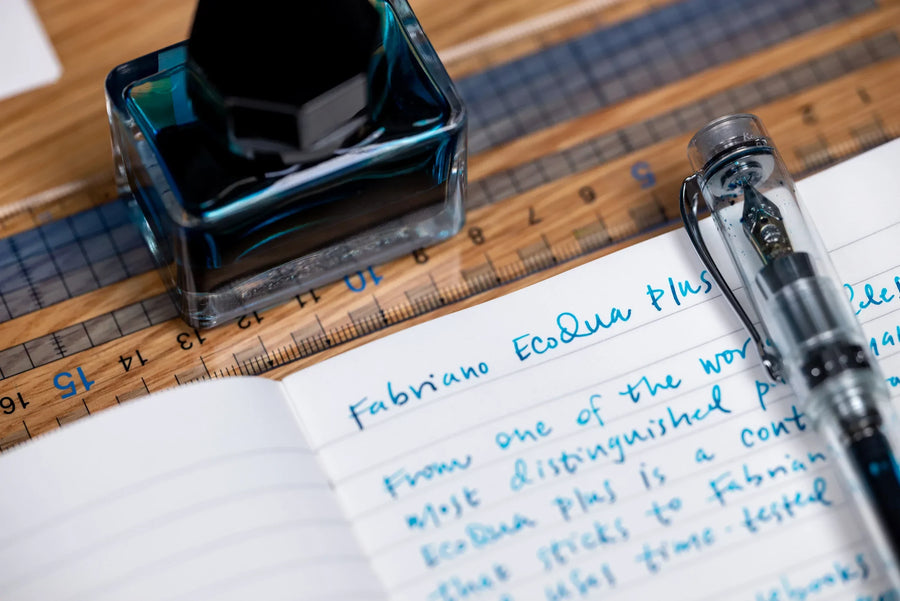 Fabriano EcoQua plus
From one of the wor
most distinguished p
EcoQua plus is a cont
that sticks to Fabrian
uses time-tested
tebooks
1 2 5 6 7 8 9 10 11 12 13 14 15 16